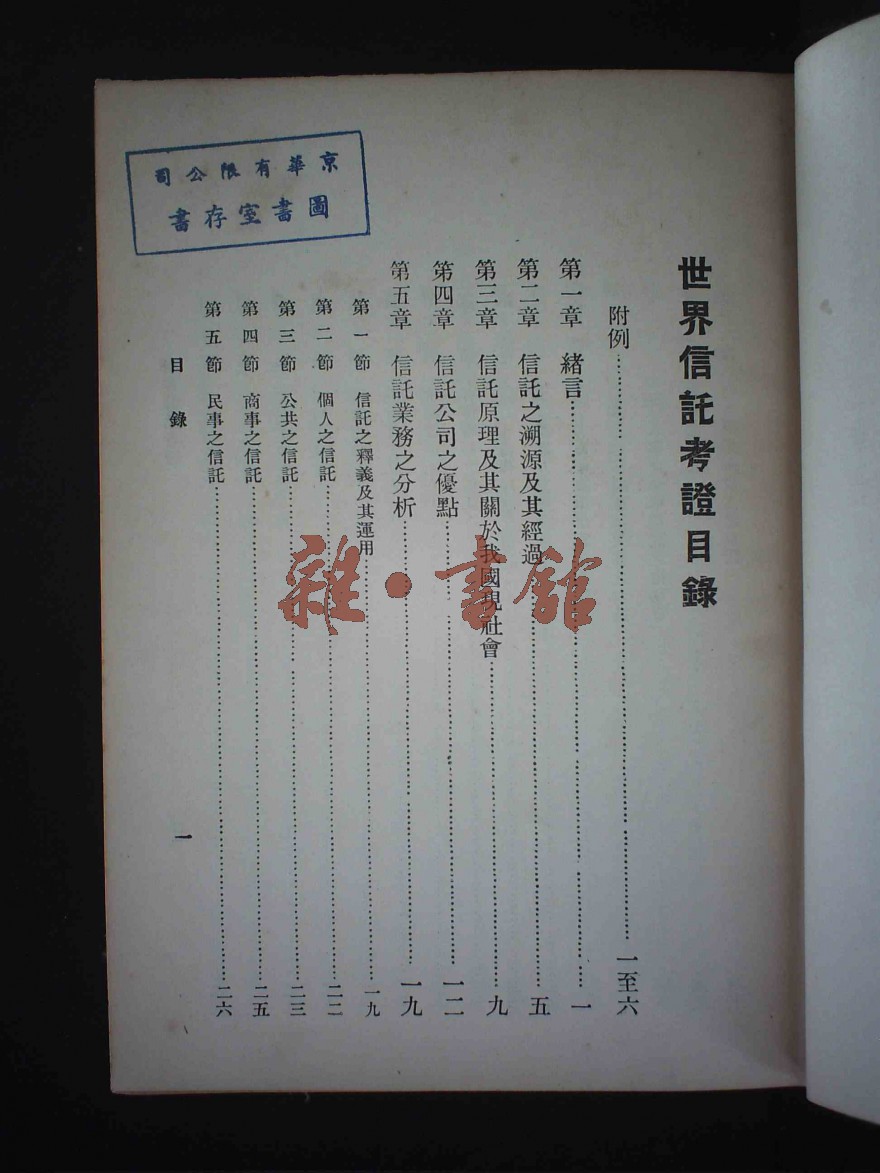 世界信託考證目錄
附例……一至六
第一章 緒言……一
第二章 信託之溯源及其經過……五
第三章 信託原理及其關於我國現社會……九
第四章 信託公司之優點……一二
第五章 信託業務之分析……一九
第一節 信託之釋義及其運用……一九
第二節 個人之信託……二二
第三節 公共之信託……二三
第四節 商事之信託……二五
第五節 民事之信託……二六
目錄
一
京華有限公司
圖書室存書
雜·書館